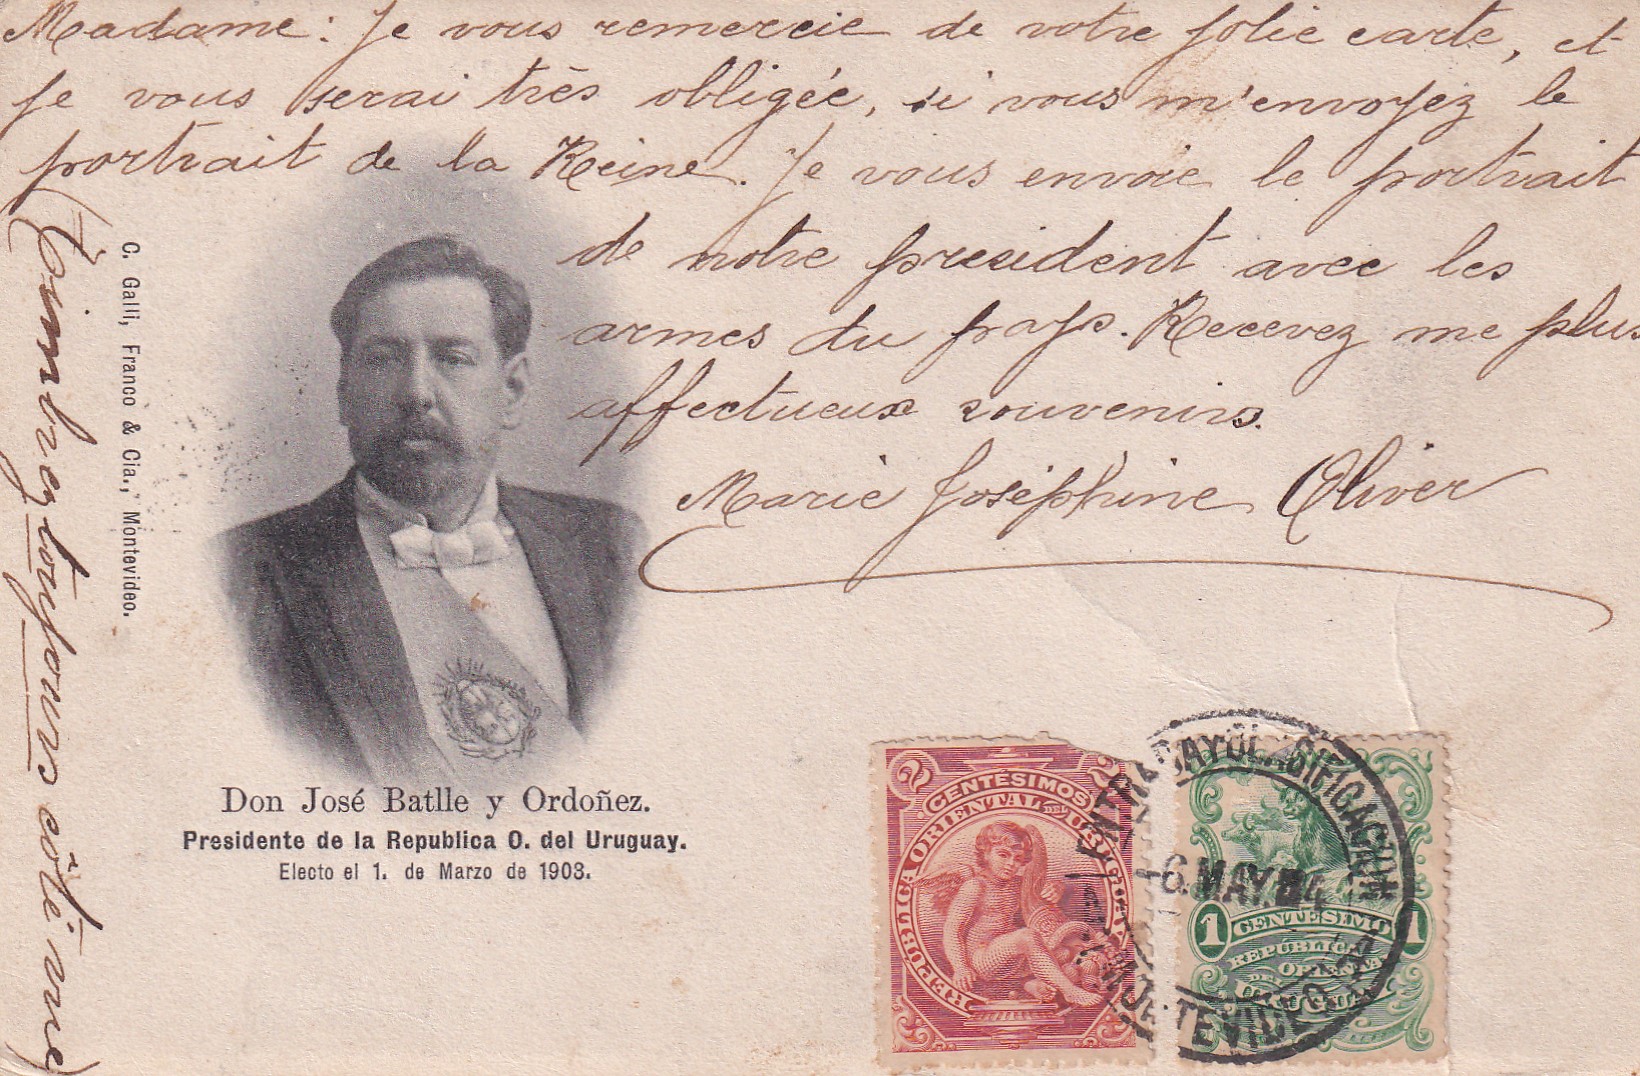 Madame: Je vous remercie de votre jolie carte, et
je vous serai très obligée, si vous m'envoyez le
portrait de la Reine. Je vous envoie le portrait
de notre president avec les
armes du pays. Recevez me plus
affectueux souvenirs.
Marie Joséphine Oliver
(Timbrez toujours côté vue)
C. Galli, Franco & Cia., Montevideo.
Don José Batlle y Ordoñez.
Presidente de la Republica O. del Uruguay.
Electo el 1. de Marzo de 1903.
2 CENTÉSIMOS 2
REPUBLICA ORIENTAL DEL URUGUAY
6.MAY.04
MONTEVIDEO
1 CENTESIMO 1
REPÚBLICA
ORIENTAL
DEL URUGUAY